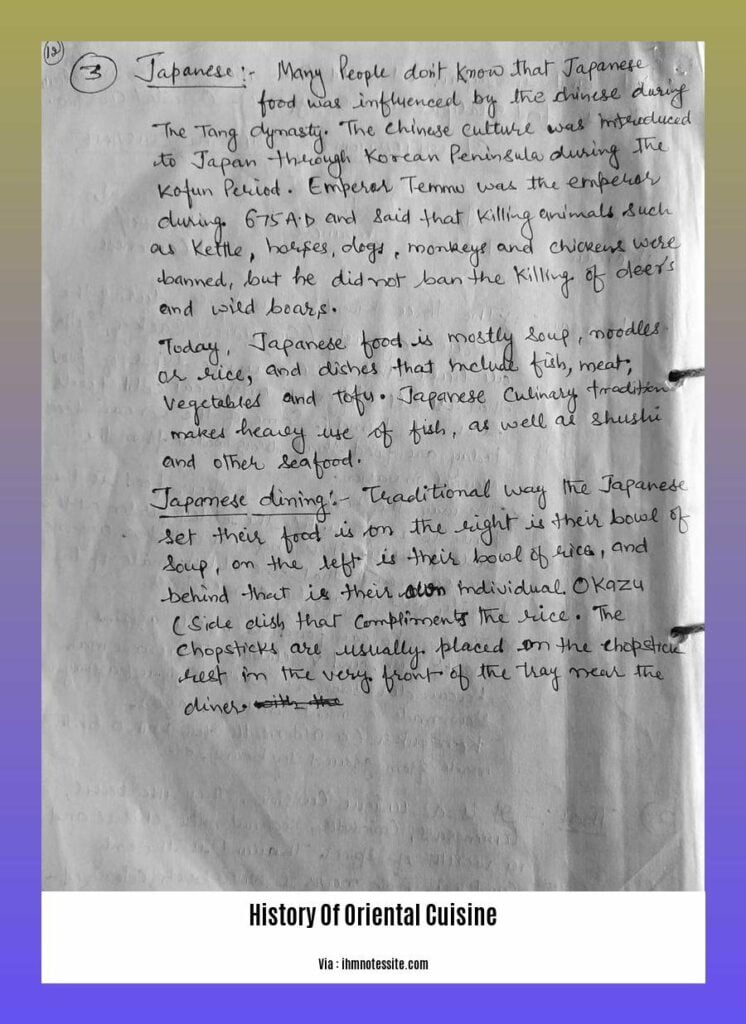 12
3 Japanese :- Many People don't know that Japanese
food was influenced by the chinese during
The Tang dynasty. The Chinese culture was introduced
to Japan through Korean Peninsula during the
Kofun Period. Emperor Temmu was the emperor
during 675 A.D and said that killing animals such
as Kettle, horses, dogs, monkeys and chickens were
banned, but he did not ban the killing of deers
and wild boars.
Today, Japanese food is mostly soup, noodles
or rice, and dishes that include fish, meat,
vegetables and tofu. Japanese Culinary tradition
makes heavy use of fish, as well as shushi
and other seafood.
Japanese dining :- Traditional way the Japanese
set their food is on the right is their bowl of
Soup, on the left is their bowl of rice, and
behind that is their own individual OKAZU
(Side dish that compliments the rice. The
chopsticks are usually placed on the chopstick
rest in the very front of the tray near the
diner. with the
History Of Oriental Cuisine
Via : ihmnotessite.com